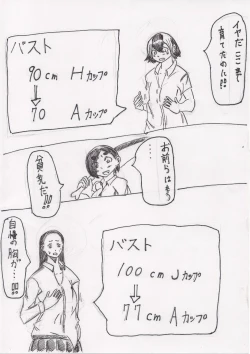 イヤだここまで
育てたのに!!
バスト
90cm Hカップ
↓
70 Aカップ
お前らはもう
貧乳だ!!!
バスト
100cm Jカップ
↓
77cm Aカップ
自慢の胸が…!!!